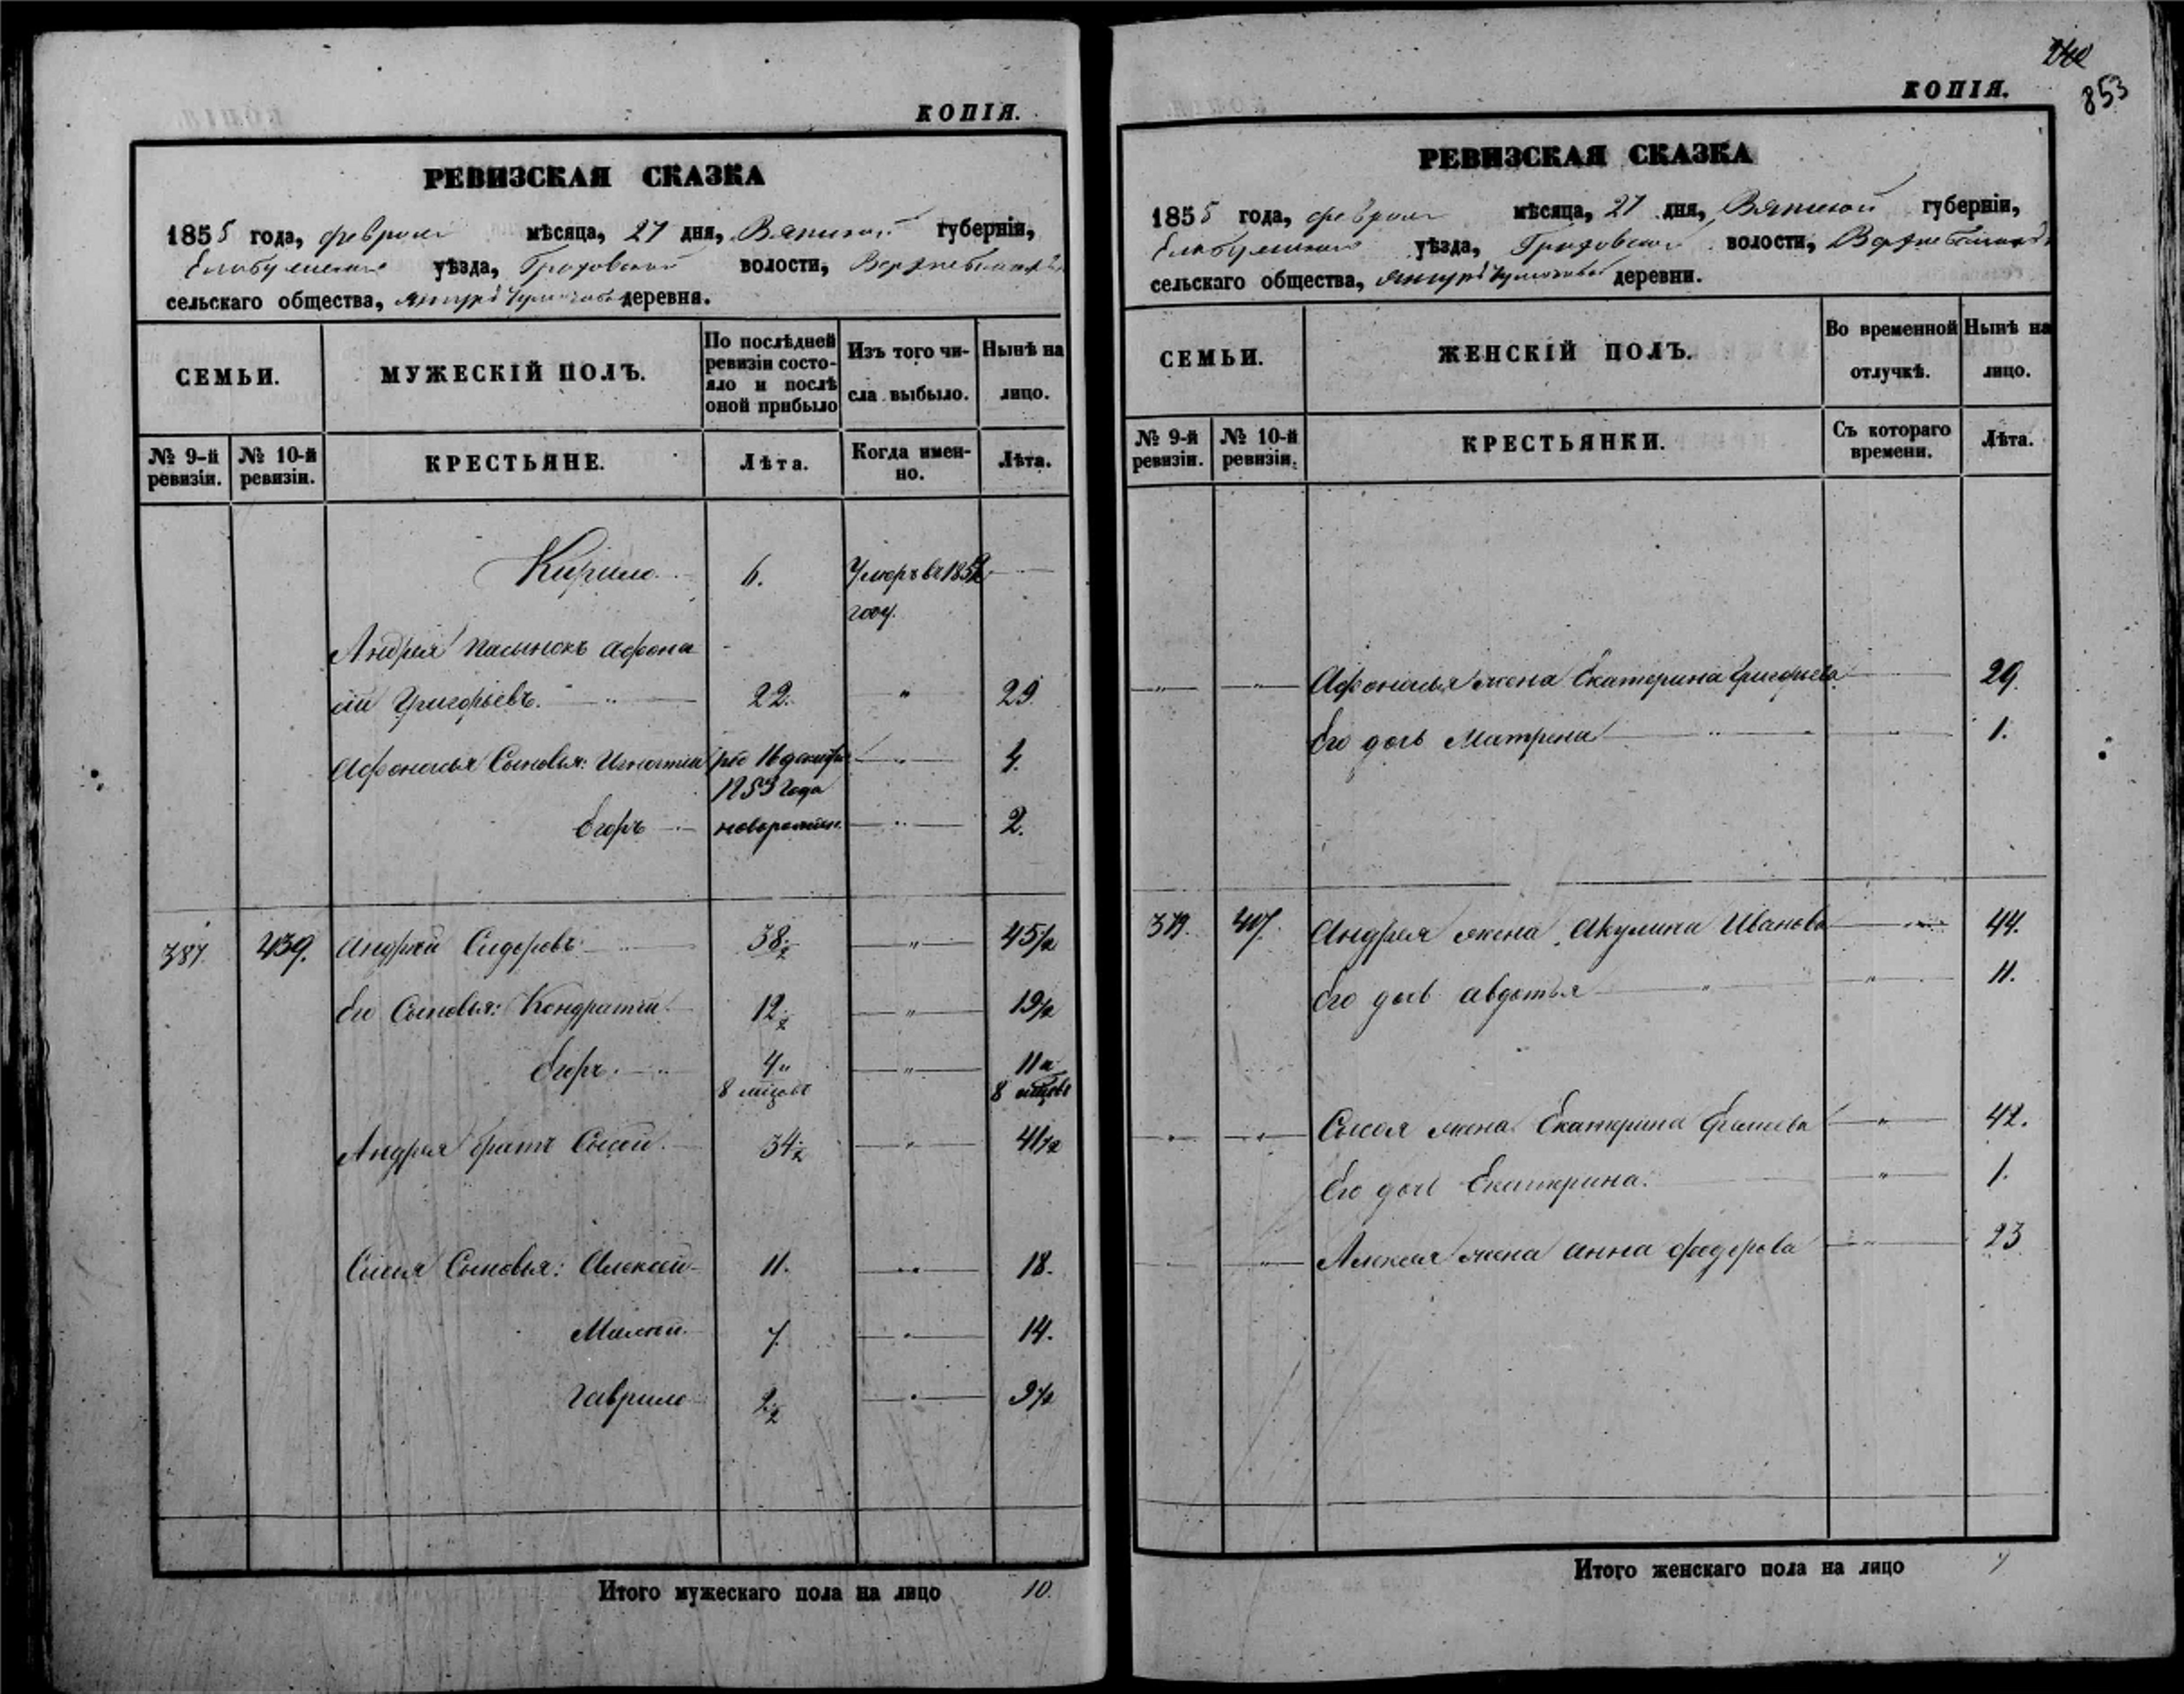 КОПІЯ.
РЕВИЗСКАЯ СКАЗКА
1858 года, февраля мѣсяца, 27 дня, Вятской губерніи,
Елабужскаго уѣзда, волости,
сельскаго общества, деревня.
СЕМЬИ.
МУЖЕСКІЙ ПОЛЪ.
По послѣдней
ревизіи состо-
яло и послѣ
оной прибыло
Изъ того чи-
сла выбыло.
Нынѣ на
лицо.
№ 9-й
ревизіи.
№ 10-й
ревизіи.
КРЕСТЬЯНЕ.
Лѣта.
Когда имен-
но.
Лѣта.
Кирило 6. Умеръ въ
году.
Андрея пасынокъ Афона
сій Григорьевъ. 22. " 29
Афонасья Сыновья: Игнатій рож 16 декабря " 4.
1853 года
Егоръ новорожден. " 2.
387. 439. Андрей Сидоровъ 38½ " 45½
Его Сыновья: Кондратій 12½ " 19½
Егоръ 4 " 11 и
8 мѣсяцовъ 8 мѣсяцовъ
Андрея братъ Сысой 34½ " 41½
Сысоя Сыновья: Алексей 11. " 18.
7. " 14.
Гаврило 2½ " 9½
Итого мужескаго пола на лицо 10.
240
КОПІЯ.
853
РЕВИЗСКАЯ СКАЗКА
1858 года, февраля мѣсяца, 27 дня, Вятской губерніи,
Елабужскаго уѣзда, волости,
сельскаго общества, деревни.
СЕМЬИ.
ЖЕНСКІЙ ПОЛЪ.
Во временной
отлучкѣ.
Нынѣ на
лицо.
№ 9-й
ревизіи.
№ 10-й
ревизіи.
КРЕСТЬЯНКИ.
Съ котораго
времени.
Лѣта.
" " Афонасья жена Екатерина Григорьева 29.
Его дочь Матрена " 1.
Андрея жена Акулина Иванова " 44.
Его дочь Авдотья " 11.
" " Сысоя жена Екатерина " 42.
Его дочь Екатерина. " 1.
" Алексея жена Анна Федорова " 23
Итого женскаго пола на лицо 7